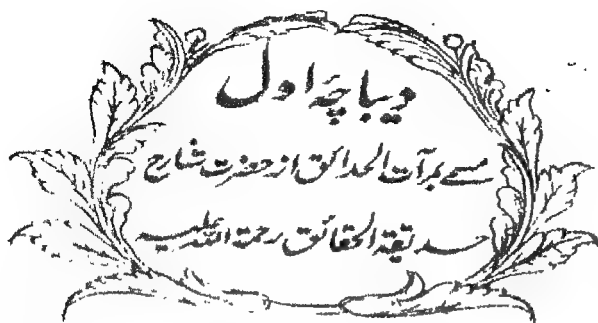 دیباچۂ اول
مسمے بمرآت الحدائق از حضرت شارح
حدیقة الحقائق رحمة اللہ علیہ